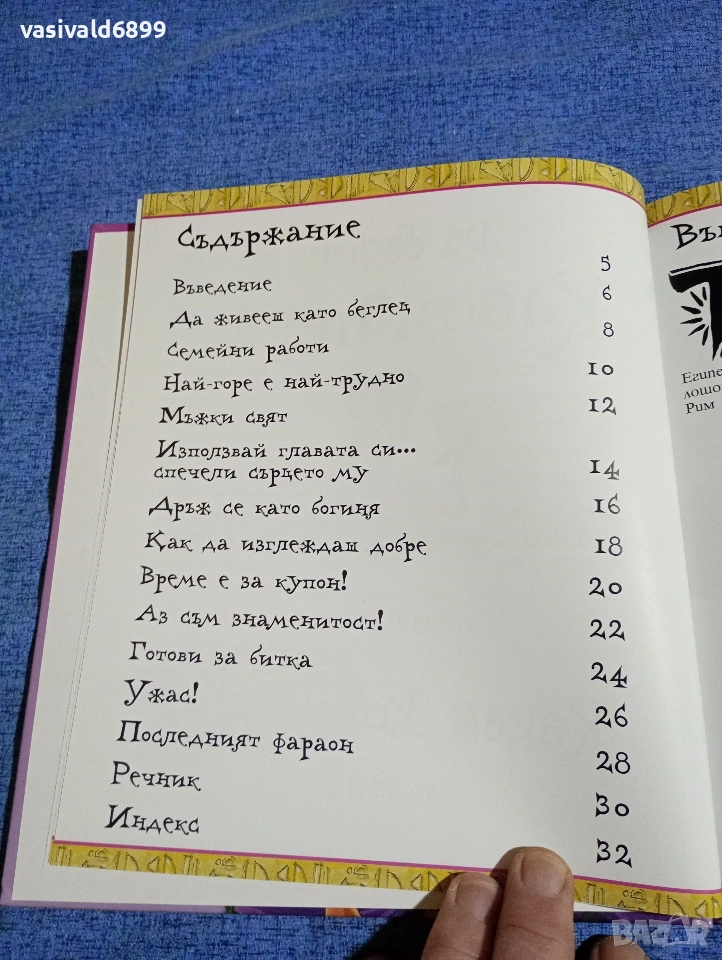 vasivald6899
Съдържание
Въведение 5
Да живееш като беглец 6
Семейни работи 8
Най-горе е най-трудно 10
Мъжки свят 12
Използвай главата си...
спечели сърцето му 14
Дръж се като богиня 16
Как да изглеждаш добре 18
Време е за купон! 20
Аз съм знаменитост! 22
Готови за битка 24
Ужас! 26
Последният фараон 28
Речник 30
Индекс 32
Рим
BAZAR